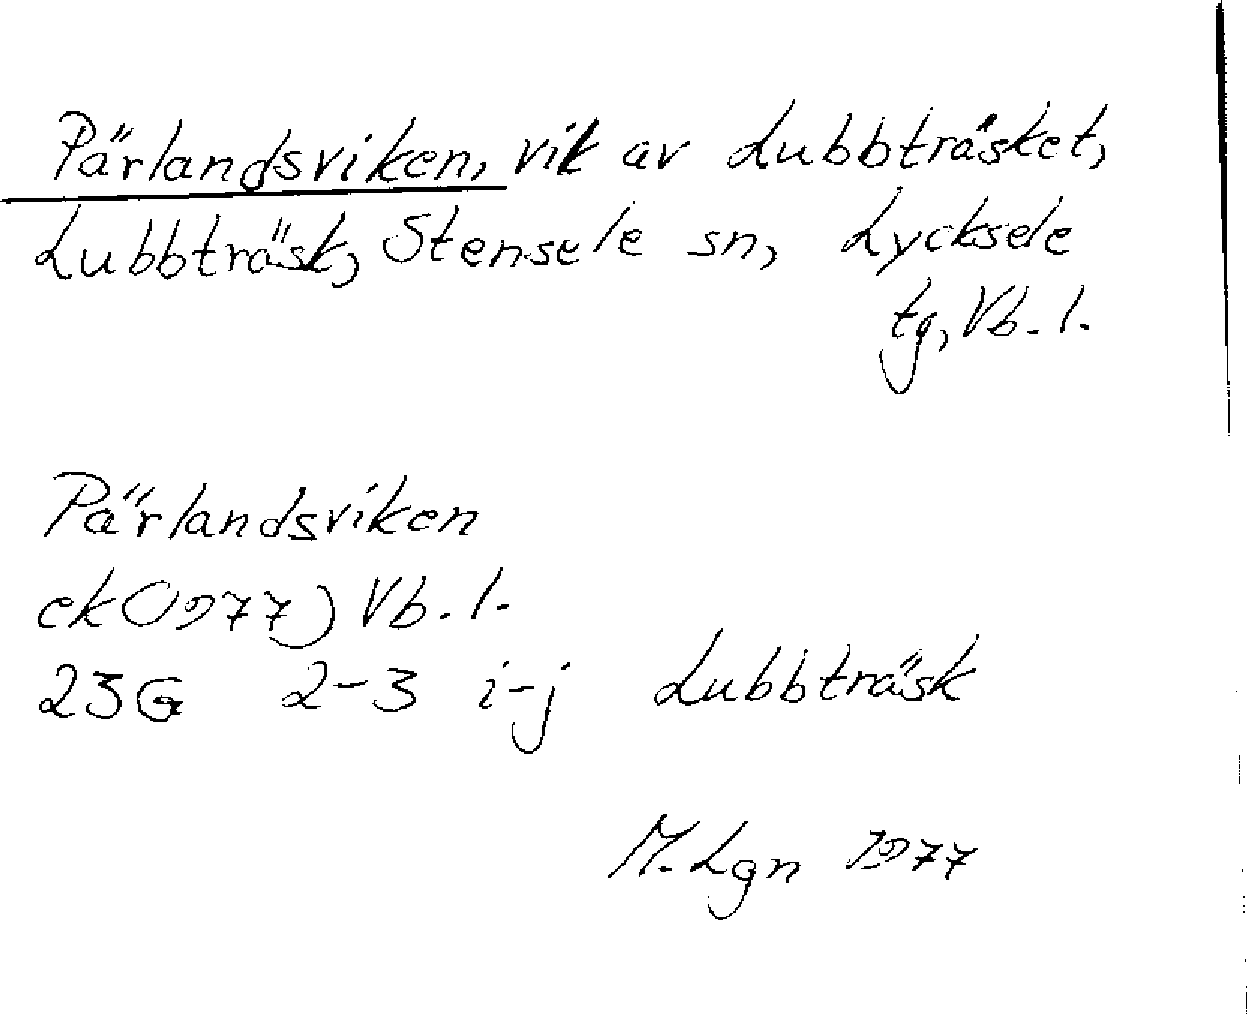 Pärlandsviken, vik av Lubbträsket,
Lubbträsk, Stensele sn, Lycksele
tg, Vb. l.
Pärlandsviken
ek (1977) Vb. l.
23G 2-3 i-j Lubbträsk
M. Lgn 1977